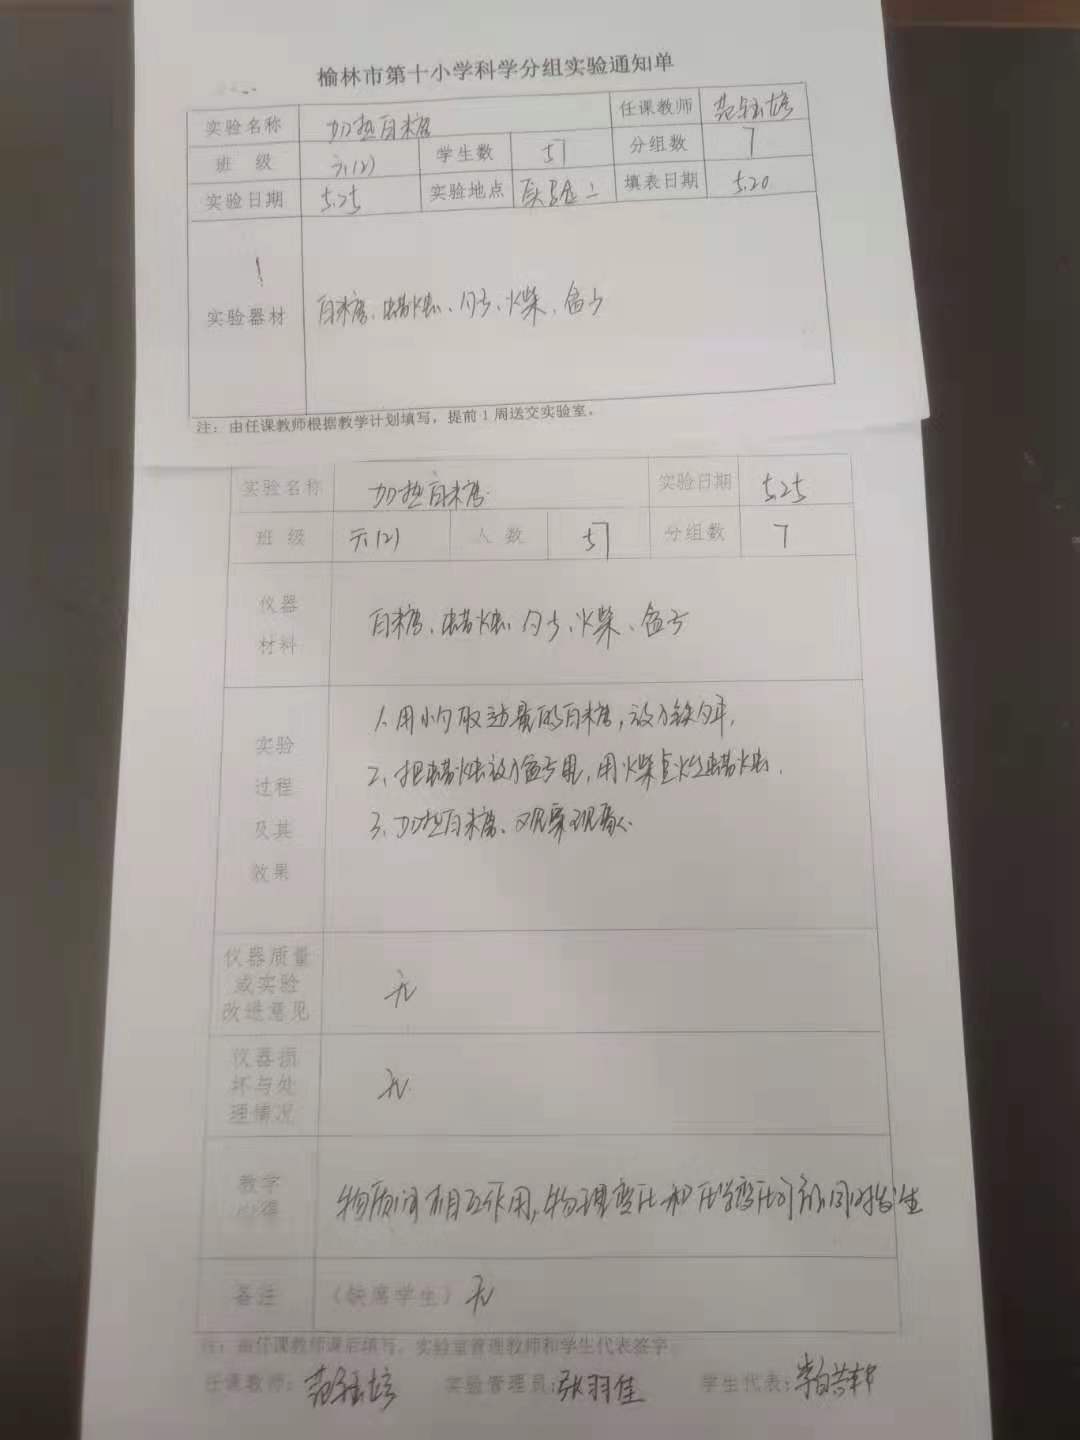 榆林市第十小学科学分组实验通知单
实验名称 加热白糖 任课教师
班 级 六(2) 学生数 51 分组数 7
实验日期 5.25 实验地点 实验室二 填表日期 5.20
实验器材 白糖、蜡烛、勺子、火柴、盒子
注：由任课教师根据教学计划填写，提前1周送交实验室。
实验名称 加热白糖 实验日期 5.25
班 级 六(2) 人 数 51 分组数 7
仪器
材料
白糖、蜡烛、勺子、火柴、盒子
实验
过程
及其
效果
1、用小勺取适量的白糖，放入铁勺中。
2、把蜡烛放入盒子里，用火柴点燃蜡烛。
3、加热白糖、观察现象。
仪器质量
或实验
改进意见
无
仪器损
坏与处
理情况
无
教学
心得
物质间相互作用，物理变化和化学变化可能同时发生
备注 （缺席学生） 无
注：由任课教师课后填写，实验室管理教师和学生代表签字。
任课教师： 实验管理员：张羽佳 学生代表：